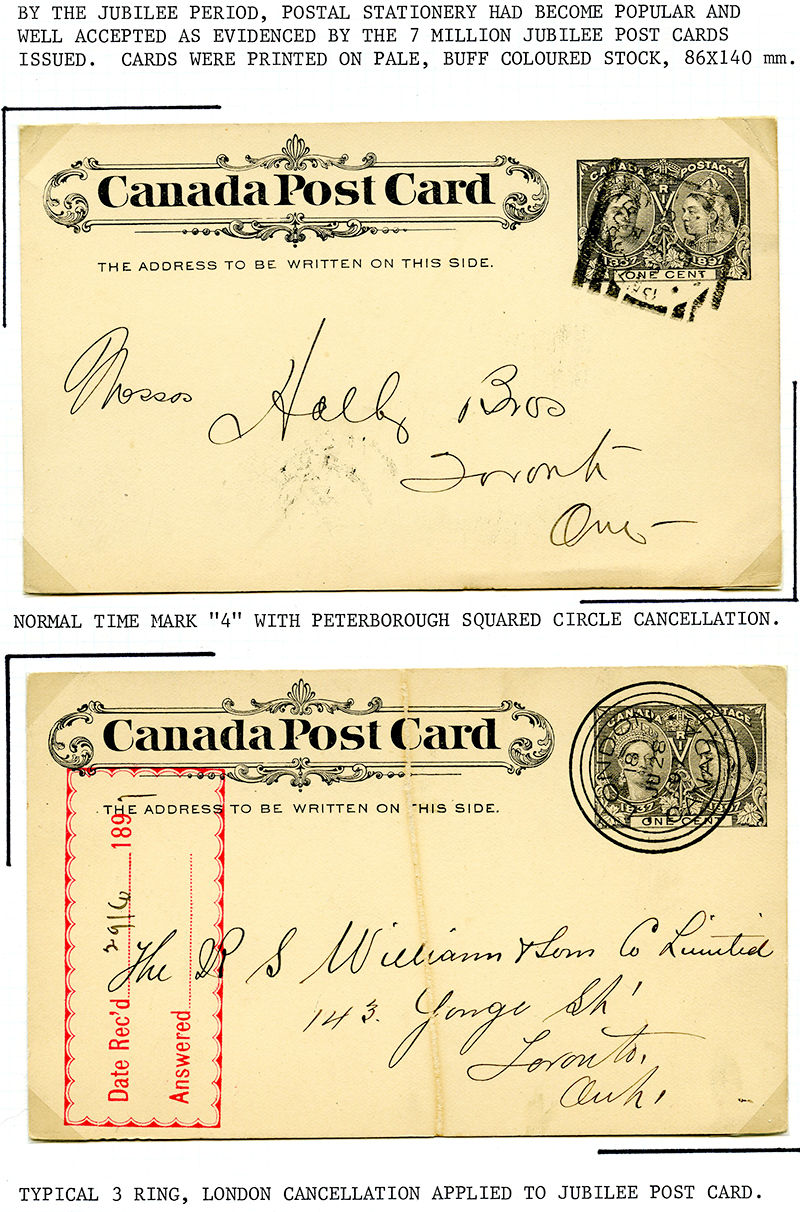 BY THE JUBILEE PERIOD, POSTAL STATIONERY HAD BECOME POPULAR AND
WELL ACCEPTED AS EVIDENCED BY THE 7 MILLION JUBILEE POST CARDS
ISSUED. CARDS WERE PRINTED ON PALE, BUFF COLOURED STOCK, 86X140 mm.
Canada Post Card
CANADA POSTAGE
V R
1837 1897
ONE CENT
THE ADDRESS TO BE WRITTEN ON THIS SIDE.
Messrs
Bros
Toronto
Ont
NORMAL TIME MARK "4" WITH PETERBOROUGH SQUARED CIRCLE CANCELLATION.
Canada Post Card
CANADA POSTAGE
V R
1837 1897
ONE CENT
LONDON CANADA
THE ADDRESS TO BE WRITTEN ON THIS SIDE.
Date Rec'd 29/6 1897
Answered
The R S Williams & Sons Co Limited
143 Yonge St
Toronto,
Ont.
TYPICAL 3 RING, LONDON CANCELLATION APPLIED TO JUBILEE POST CARD.